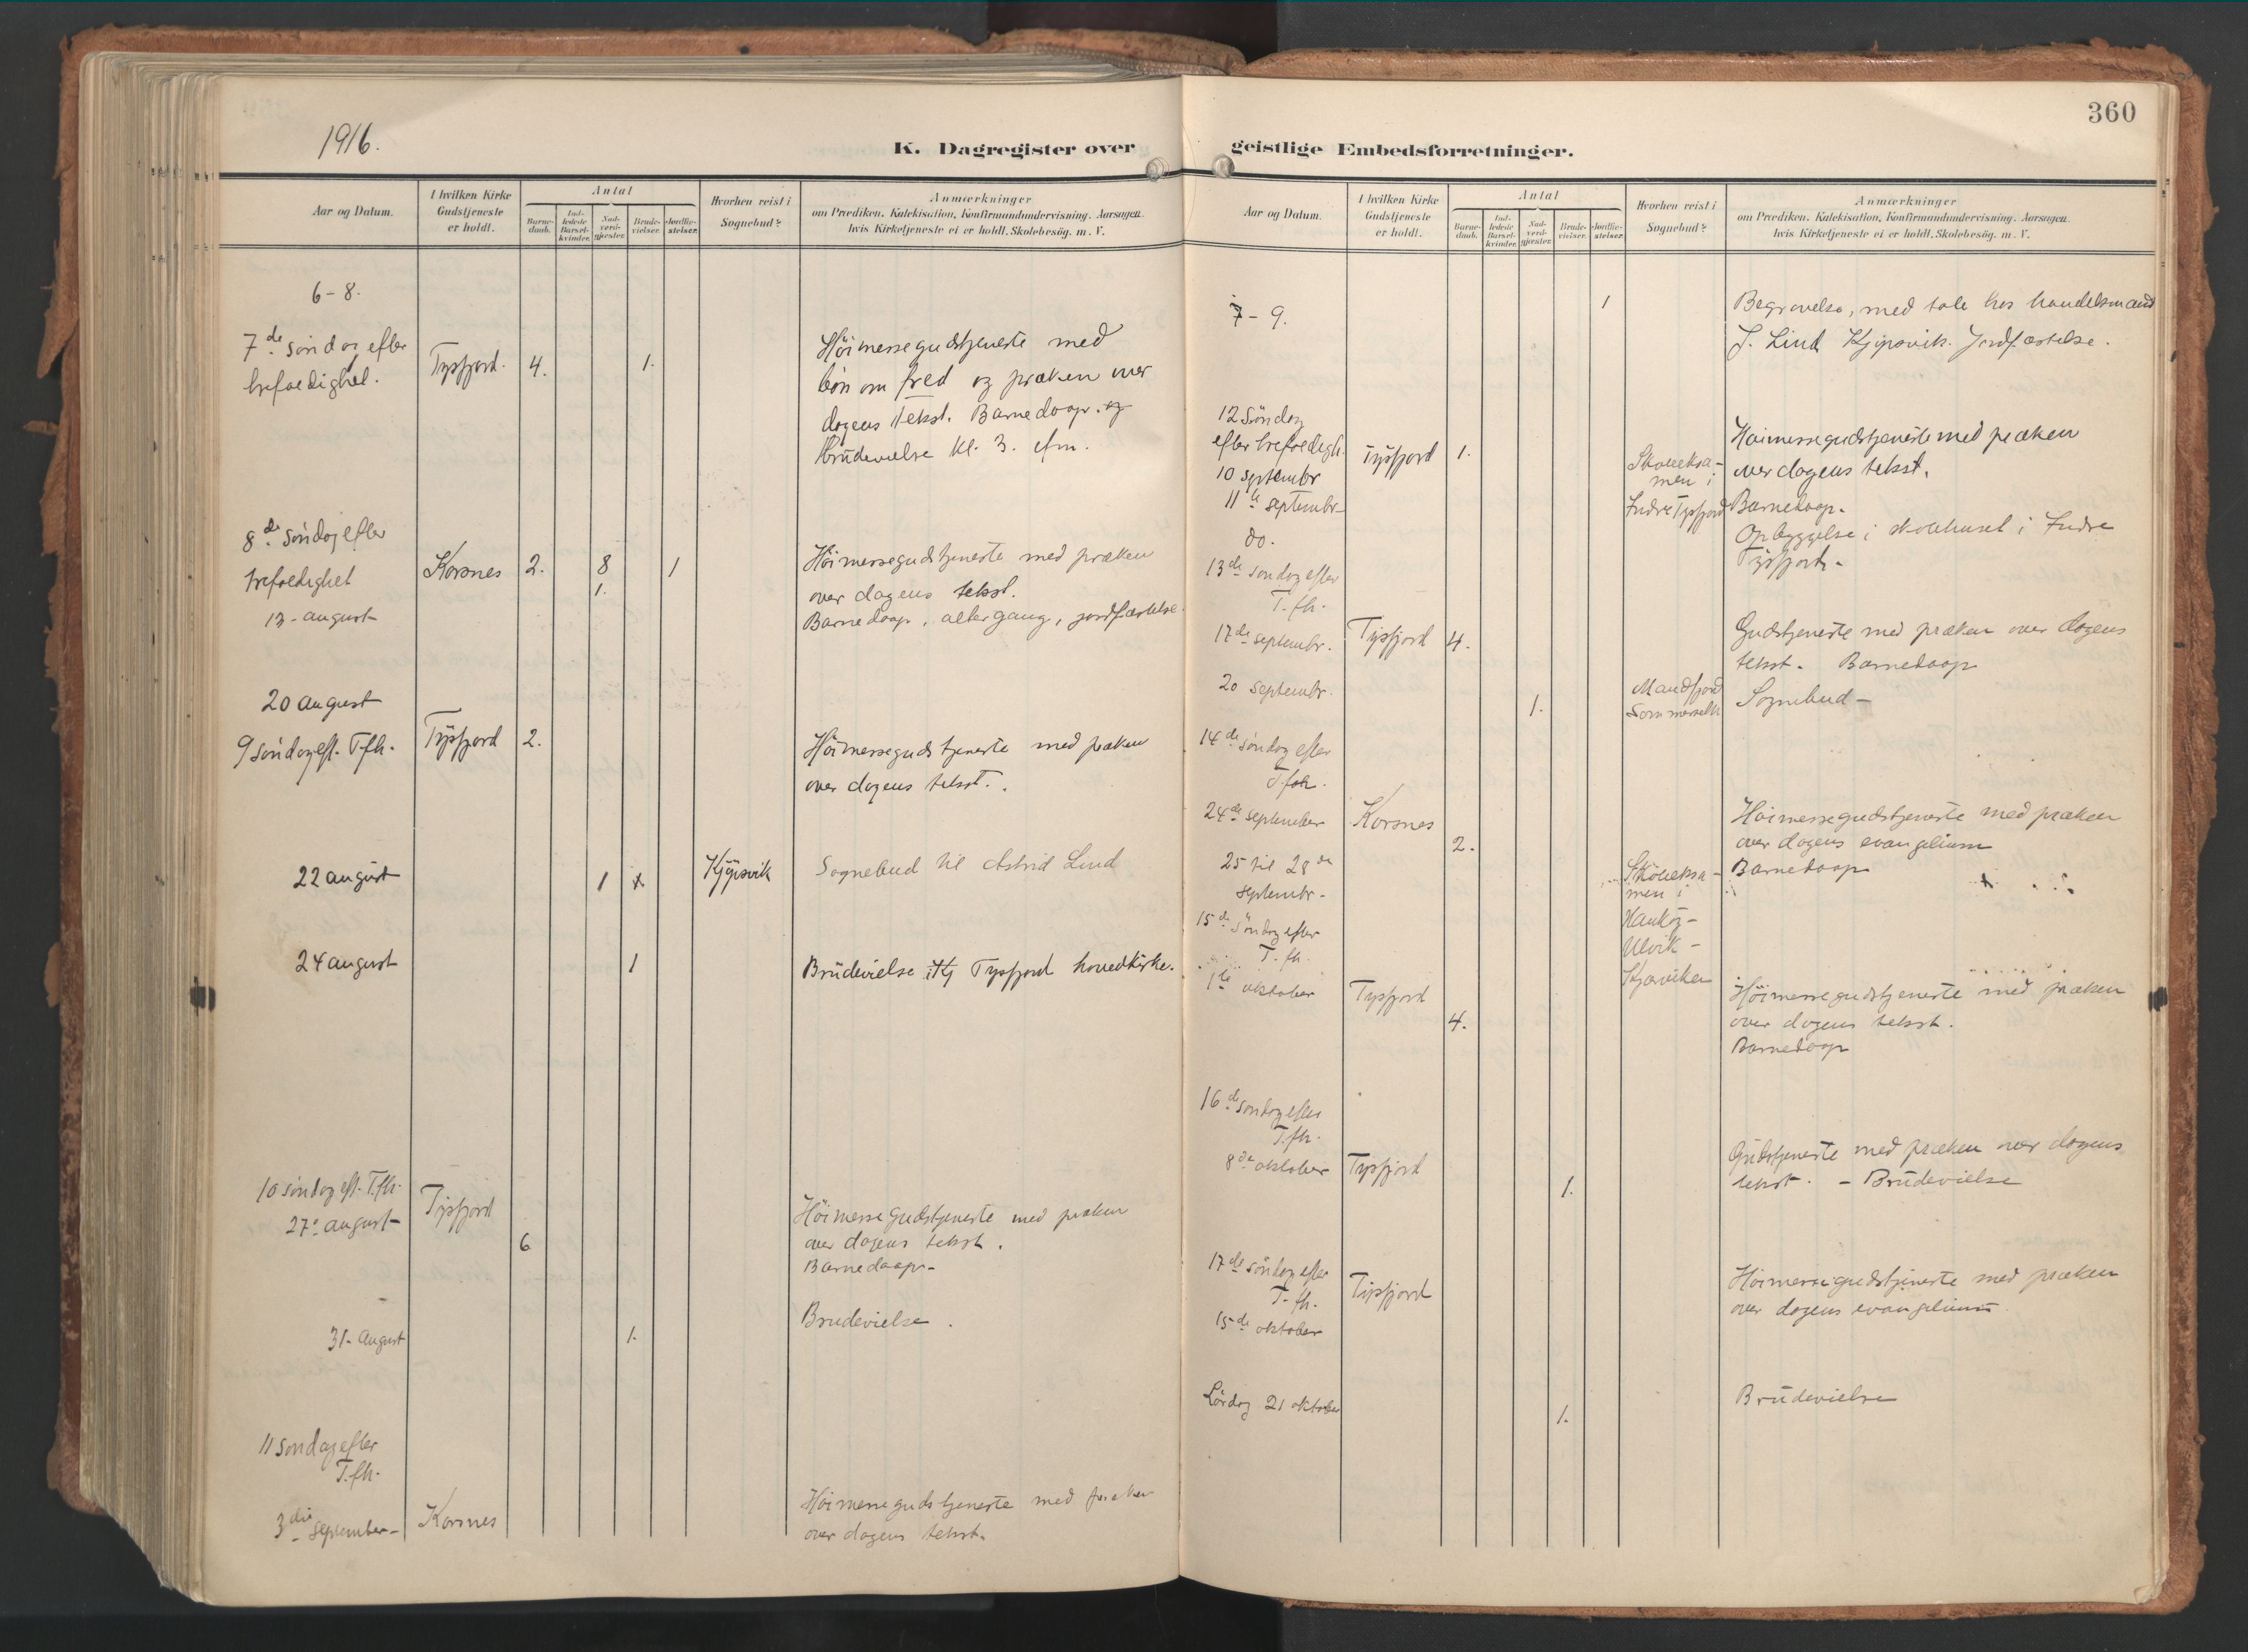 360
1916.
K. Dagregister over
geistlige Embedsforretninger.
Aar og Datum.
I hvilken Kirke
Gudstjeneste
er holdt.
Antal
Barne-
daab.
Ind-
ledede
Barsel-
kvinder.
Nad-
verd-
gjester.
Brude-
vielser.
Jordfæ-
stelser.
Hvorhen reist i
Sognebud?
Anmærkninger
om Prædiken, Katekisation, Konfirmandundervisning, Aarsagen,
hvis Kirketjeneste ei er holdt, Skolebesög. m. V.
6-8.
7de söndag efter
trefoldighet.
Tysfjord.
4.
1.
Höimessegudstjeneste med
bön om fred og præken over
dagens tekst. Barnedaap. og
Brudevielse kl. 3. efm.
8de söndag efter
trefoldighet
13-august
Korsnes
2.
8
1.
1
Höimessegudstjeneste med præken
over dagens tekst.
Barnedaap, altergang, jordfæstelse
20 august
9 söndag eft. T.fh.
Tysfjord
2.
Höimessegudstjeneste med præken
over dagens tekst.
22 august
1
x
Kjöpsvik
Sognebud til Astrid Lind
24 august
1
Brudevielse i Tysfjord hovedkirke.
10 söndag eft. T.fh.
27. august
Tysfjord
6
Höimessegudstjeneste med præken
over dagens tekst.
Barnedaap-
31- August
1.
Brudevielse.
11 söndag efter
T.fh.
3die september-
Korsnes
Höimessegudstjeneste med præken
over dagens tekst.
Aar og Datum.
I hvilken Kirke
Gudstjeneste
er holdt.
Antal
Barne-
daab.
Ind-
ledede
Barsel-
kvinder.
Nad-
verd-
gjester.
Brude-
vielser.
Jordfæ-
stelser.
Hvorhen reist i
Sognebud?
Anmærkninger
om Prædiken, Katekisation, Konfirmandundervisning, Aarsagen,
hvis Kirketjeneste ei er holdt, Skolebesög. m. V.
7-9.
1
Begravelse, med tale hos handelsmand
J. Lind Kjöpsvik. Jordfæstelse.
12 Söndag
efter trefoldigh.
10 septembr
Tysfjord
1.
Höimessegudstjeneste med præken
over dagens tekst.
Barnedaap.
11te septembr-
do.
Skoleeksa-
men i
Indre Tysfjord
Opbyggelse i skolehuset i Indre
Tysfjord.
13de söndag efter
T.fh.
17de septembr.
Tysfjord
4.
Gudstjeneste med præken over dagens
tekst. Barnedaap
20 septembr.
1.
Mandfjord
Sognebud-
14de söndag efter
T.foh.
24de september
Korsnes
2.
Höimessegudstjeneste med præken
over dagens evangelium
Barnedaap
25 til 28de
septembr-
Skoleeksa-
men i
Haukög-
Ulvik-
Kjærviken
15de Söndag efter
T.fh.
1te oktober
Tysfjord
4.
Höimessegudstjeneste med præken
over dagens tekst.
Barnedaap
16de söndag efter
T.fh.
8de oktober
Tysfjord
1.
Gudstjeneste med præken over dagens
tekst. - Brudevielse
17de söndag efter
T.fh.
15de oktober
Tysfjord
Höimessegudstjeneste med præken
over dagens evangelium.
Lördag 21 oktober
1.
Brudevielse